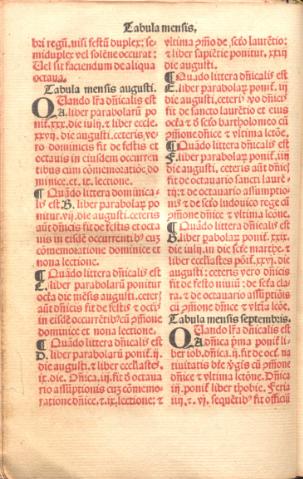 Tabula mensis,
bri regū. nisi festū duplex: se
miduplex vel solēne occurat:
Vel sit faciendum de aliqua
octaua.
Tabula mensis augusti.
Quando lr̄a dn̄icalis est
A. liber parabolarū po
nit̄. xxx. die iulij. ⁊ liber eccle.
vij. die augusti. ceteris vero
dominicis fit de festis et
octauis in eisdem occurren
tibus cum cōmemoratiōe do
minice. et. ix. lectione.
¶ Quādo littera dominica
lis est B. liber parabolaꝝ po
nitur. vij. die augusti. ceteris
aūt dn̄icis fit de festis et octa
uis in eisdē occurrentibꝰ cuz
cōmemoratione dominice et
nona lectione.
¶ Quādo littera dn̄icalis est
C. liber parabolarū ponitur
octa die mēsis augusti. ceteris
aūt dn̄icis fit de festis ⁊ octa
uis in eisdē occurrentibꝰ cū
dominice et nona lectione.
¶ Quādo littera dn̄icalis est
D. liber parabolarū ponit̄. ij
augusti. ⁊ liber ecclesiastes.
ix. die. Dn̄ica. iij. fit d̄ octaua
rio assumptionis cuz cōmemo
ratione dn̄ice. ⁊. ix. lectione: ⁊
vltima
de sctō laurētio:
⁊ liber sapiētie ponitur. xxij
die augusti.
¶ Quādo lr̄a dn̄icalis est
E. liber parabolarum ponit̄. iij
die augusti. ceteris vo dn̄icis
fit de sanctis laurētio et eius
octa ⁊ de sctō bartholoneo cū
dn̄ice et vltima lctōne.
¶ Quādo littera dn̄icalis est
F. liber parabolaꝝ ponit̄. iiij
die augusti. ceteris aūt dn̄icis
fit de octauario sancti laurē
tij. ⁊ de octauario assumptio
nis ⁊ de sctō ludouico rege cū
dn̄ice et vltima lcōne.
¶ Quādo littera dn̄icalis est
G. liber pabolaꝝ ponit̄. xxix.
die iulij. in die scē marthe. ⁊
liber ecclīastes pōit̄. xxvi. die
augusti: ceteris vero dn̄icis
fit de festo niuiū: de scta cla
ra. ⁊ de octauario assūptiōis
cū dn̄ice ⁊ vltīa lcōe.
Tabula mensis septembris.
Quando lr̄a dn̄icalis est
A. dn̄ica pma ponit̄ li
ber iob. dn̄ica. ij. fit de oct̄. na
tiuitatis btē ꝟgīs cū
dn̄ice ⁊ vltima lctōne. Dn̄ica
iij. ponit̄ liber thobie. Feria
iiij. ⁊. vj. sequētibꝰ fit officiū